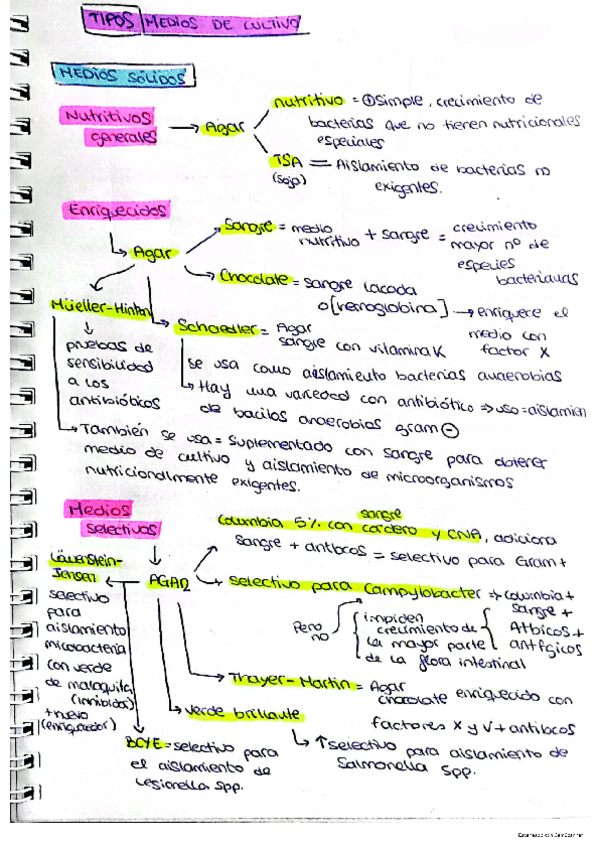 TIPOS MEDIOS DE CULTIVO
MEDIOS SÓLIDOS
Nutritivos generales → Agar
nutritivo = ⊕ simple, crecimiento de
bacterias que no tienen nutricionales
especiales
TSA = Aislamiento de bacterias no
(soja)
exigentes.
Enriquecidos
↳ Agar
Sangre = medio nutritivo + sangre = crecimiento mayor nº de especies bacterianas
Chocolate = sangre lacada
o [hemoglobina] → enriquece el
medio con
factor X
Müeller-Hinton
↓
pruebas de
sensibilidad
a los
antibióticos
Schaedler = Agar sangre con vitamina K
se usa como aislamiento bacterias anaerobias
↳ Hay una variedad con antibiótico ⇒ uso = aislamien
de bacilos anaerobios gram ⊖
→ También se usa = suplementado con sangre para obtener
medio de cultivo y aislamiento de microorganismos
nutricionalmente exigentes.
Medios
selectivos
AGAR
sangre
Columbia 5% con cordero y CNA, adiciona
sangre + antbcos = selectivo para Gram+
selectivo para Campylobacter ⇒ Columbia +
sangre +
Atbicos +
antfgicos
Pero no
impiden
crecimiento de
la mayor parte
de la flora intestinal
Löwenstein-
Jensen
selectivo
para
aislamiento
micobacteria
con verde
de malaquita
(inhibidor)
+ huevo
(enriquecedor)
Thayer-Martin = Agar chocolate enriquecido con
factores X y V + antibcos
Verde brillante
↳ ↑ selectivo para aislamiento de
Salmonella spp.
BCYE = selectivo para
el aislamiento de
Legionella spp.
Escaneado con CamScanner